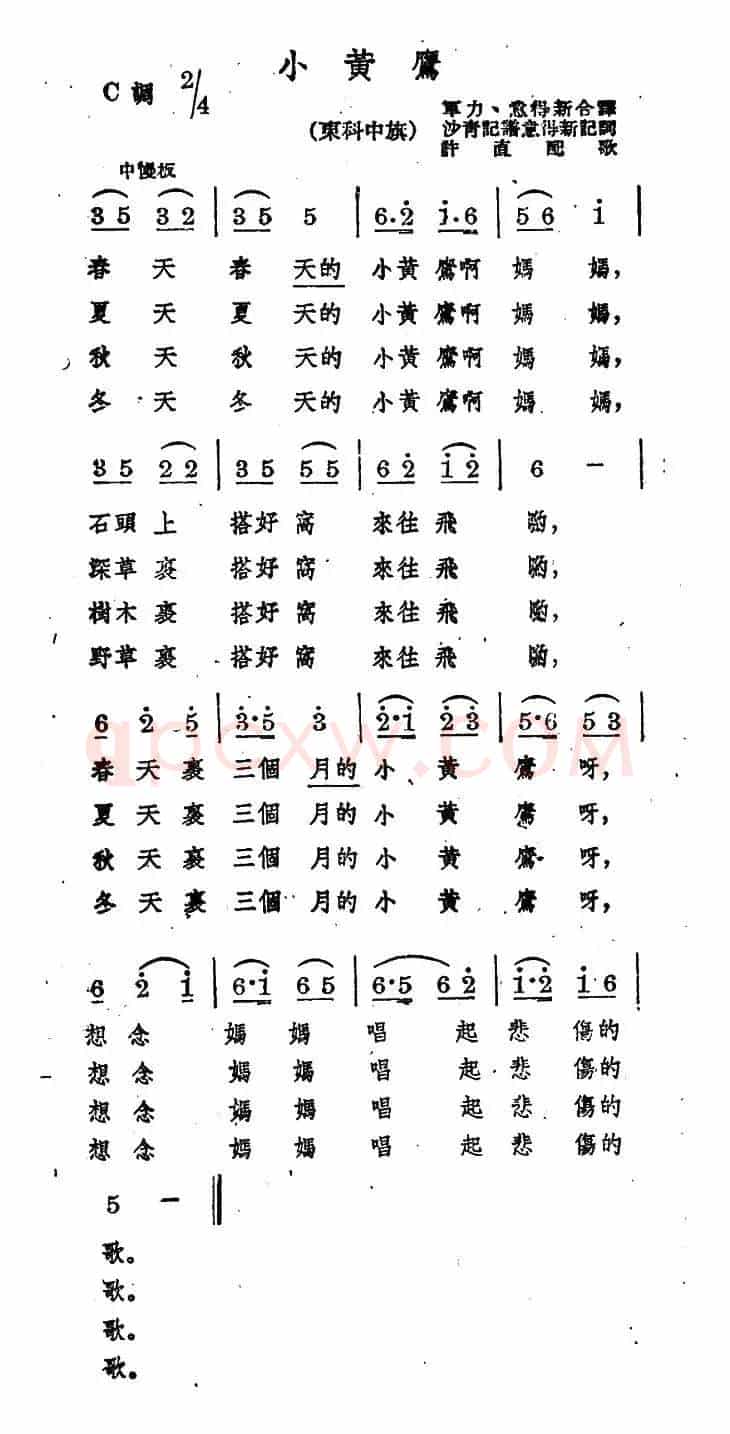 小黃鷹
C調 2/4
軍力、愈得新合譯
(東科中旗) 沙青記譜意得新記詞
許直配歌
中慢板
3 5 3 2 | 3 5 5 | 6·2̇ 1̇·6 | 5 6 1̇ |
春天春天的小黃鷹啊媽媽,
夏天夏天的小黃鷹啊媽媽,
秋天秋天的小黃鷹啊媽媽,
冬天冬天的小黃鷹啊媽媽,
3 5 2 2 | 3 5 5 5 | 6 2̇ 1̇ 2̇ | 6 — |
石頭上搭好窩來往飛喲,
深草裏搭好窩來往飛喲,
樹木裏搭好窩來往飛喲,
野草裏搭好窩來往飛喲,
6 2̇ 5̇ | 3̇·5̇ 3̇ | 2̇·1̇ 2̇ 3̇ | 5·6 5 3 |
qpcxw.com
春天裏三個月的小黃鷹呀,
夏天裏三個月的小黃鷹呀,
秋天裏三個月的小黃鷹呀,
冬天裏三個月的小黃鷹呀,
6 2̇ 1̇ | 6·1̇ 6 5 | 6·5 6 2̇ | 1̇·2̇ 1̇ 6 |
想念媽媽唱起悲傷的
想念媽媽唱起悲傷的
想念媽媽唱起悲傷的
想念媽媽唱起悲傷的
5 — ‖
歌。
歌。
歌。
歌。